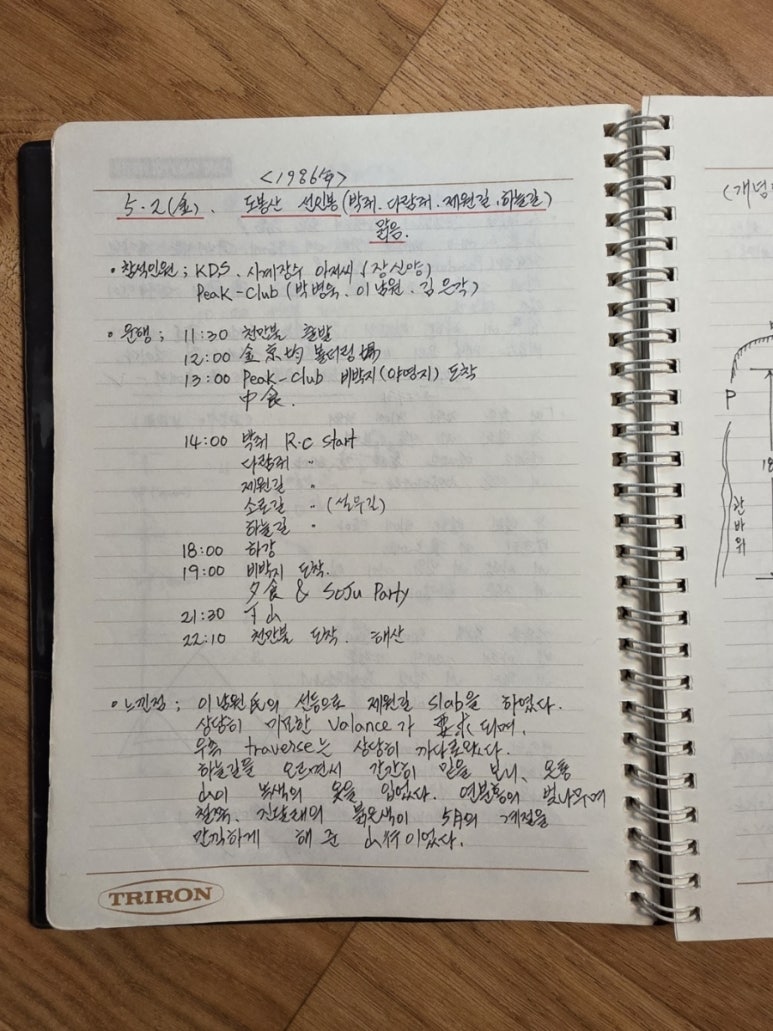 <1986年>
5·2(金). 도봉산 선인봉(박쥐.다람쥐.제원길.하늘길)
맑음.
·참석인원; KDS. 사계장수 아저씨 (장신양)
Peak-Club (박병욱. 이남원. 김은각)
·운행; 11:30 천만불 출발
12:00 金京均 볼더링場
13:00 Peak-Club 비박지(야영지) 도착
中食.
14:00 박쥐 R.C Start
다람쥐 〃
제원길 〃
소로길 〃 (설우길)
하늘길 〃
18:00 하강
19:00 비박지 도착.
夕食 & Soju Party
21:30 下山
22:10 천만불 도착. 해산
·느낀점; 이남원氏의 선등으로 제원길 slab을 하였다.
상당히 미묘한 Valance가 要求되며,
우측 traverse는 상당히 까다로왔다.
하늘길을 오르면서 간간히 밑을 보니, 온통
山이 녹색의 옷을 입었다. 연분홍의 벚나무며
철쭉, 진달래의 붉은색이 5月의 계절을
만끽하게 해 준 山行이었다.
TRIRON
(개념
P
찬바위
18